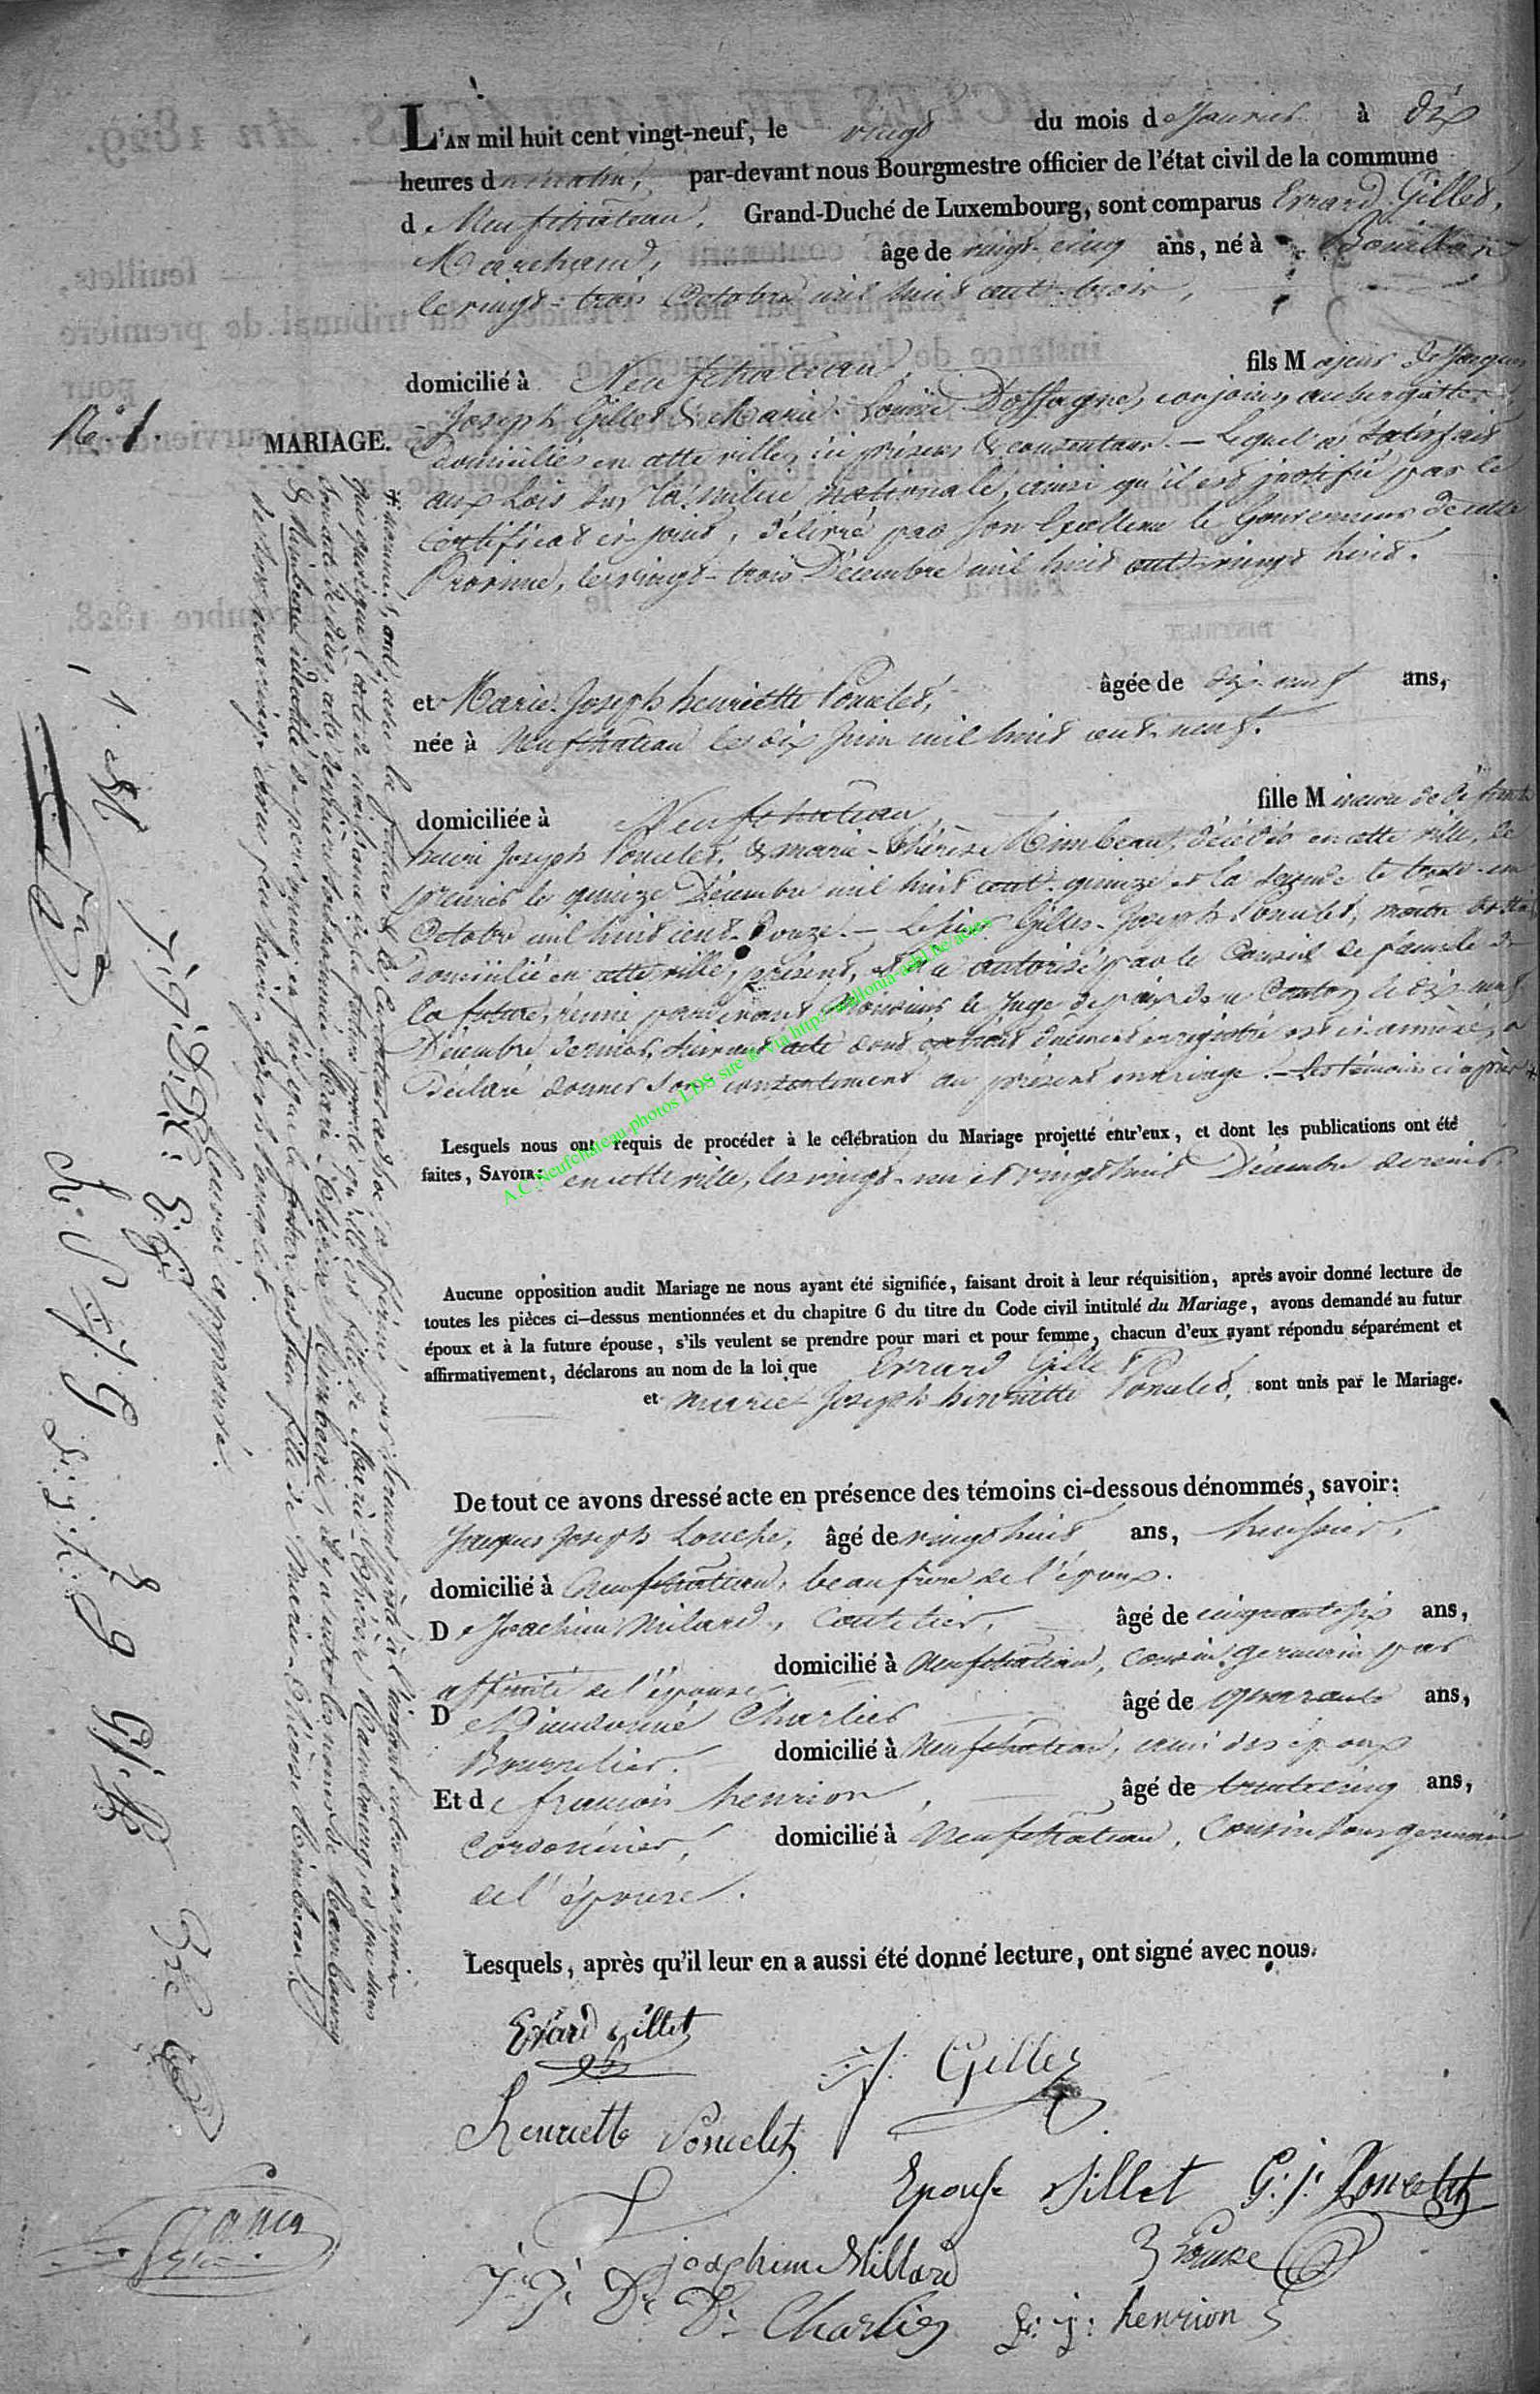 L'AN mil huit cent vingt-neuf, le vingt du mois de Janvier à dix
heures du matin, par-devant nous Bourgmestre officier de l'état civil de la commune
d Neufchâteau, Grand-Duché de Luxembourg, sont comparus Errard Gillet,
Marchand, âge de vingt-cinq ans, né à Bouillon
le vingt-trois Octobre mil huit cent trois,
domicilié à Neufchateau, fils Majeur de Jacques
N.º 1.
MARIAGE.
Joseph Gillet & Marie-Louise Dossogne, conjoins, aubergistes,
domiciliés en cette ville, ici présens & consentans. — Lequel a satisfait
aux Lois sur la milice nationale, ainsi qu'il est justifié par le
Certificat ci-joint, délivré par Son Excellence le Gouverneur de cette
Province, le vingt-trois Décembre mil huit cent vingt huit.
et Marie-Joseph henriette Poncelet, âgée de dix-neuf ans,
née à Neufchateau le dix Juin mil huit cent neuf.
domiciliée à Neufchateau, fille Mineure de défunts
henri Joseph Poncelet, & marie-thérèse Rimbeau, décédés en cette ville, le
premier le quinze Décembre mil huit cent quinze et la seconde le trente-un
Octobre mil huit cent douze. — Le sieur Gilles-Joseph Poncelet,
domicilié en cette ville, présent, et autorisé par le Conseil de famille de
la future, réuni pardevant Monsieur le Juge de paix de ce Canton le dix-neuf
Décembre dernier, suivant acte dont extrait dûment enregistré est ci-annexé, a
Déclaré donner son consentement au présent mariage. — Les témoins ci-après +
Lesquels nous ont requis de procéder à le célébration du Mariage projetté entr'eux, et dont les publications ont été
faites, SAVOIR: en cette ville, les vingt-un et vingt huit Décembre dernier.
Aucune opposition audit Mariage ne nous ayant été signifiée, faisant droit à leur réquisition, après avoir donné lecture de
toutes les pièces ci-dessus mentionnées et du chapitre 6 du titre du Code civil intitulé du Mariage, avons demandé au futur
époux et à la future épouse, s'ils veulent se prendre pour mari et pour femme, chacun d'eux ayant répondu séparément et
affirmativement, déclarons au nom de la loi que Errard Gillet
et marie-Joseph henriette Poncelet, sont unis par le Mariage.
De tout ce avons dressé acte en présence des témoins ci-dessous dénommés, savoir:
Jacques Joseph Louche, âgé de vingt huit ans, huissier,
domicilié à Neufchateau, beau frère de l'époux.
De Joachim Milard, Coutelier, âgé de cinquante six ans,
domicilié à Neufchateau, cousin germain par
affinité de l'épouse
De Dieudonné Charlier âgé de quarante ans,
Bourrelier. domicilié à Neufchateau, ami des époux
Et de françois henrion, âgé de trente cinq ans,
Cordonnier, domicilié à Neufchateau, Cousin sous germain
de l'épouse.
Lesquels, après qu'il leur en a aussi été donné lecture, ont signé avec nous.
Erard Gillet
J. J. Gillet
Henriette Poncelet
Epouse Gillet G: j: Poncelet
joachim Millard
D. Charlier f: j: henrion
+ dénommés, ont, avec la future & le Curateur ad hoc, affirmé par serment prêté à
que quoique l'acte de naissance de la future porte qu'elle est fille de Marie-Thérèse Rambourg, et que dans
l'acte de décès, cette dernière soit nommée Marie-Thérèse Rimbeau, il y a entre les noms de Rambourg
& Rimbeau identité de personne, et que la future est bien fille de Marie-Thérèse Rimbeau &
de son mariage avec feu henri-Joseph Poncelet.
approuvé.
A.C. Neufchateau photos LDS site & via http://wallonia-asbl.be/actes